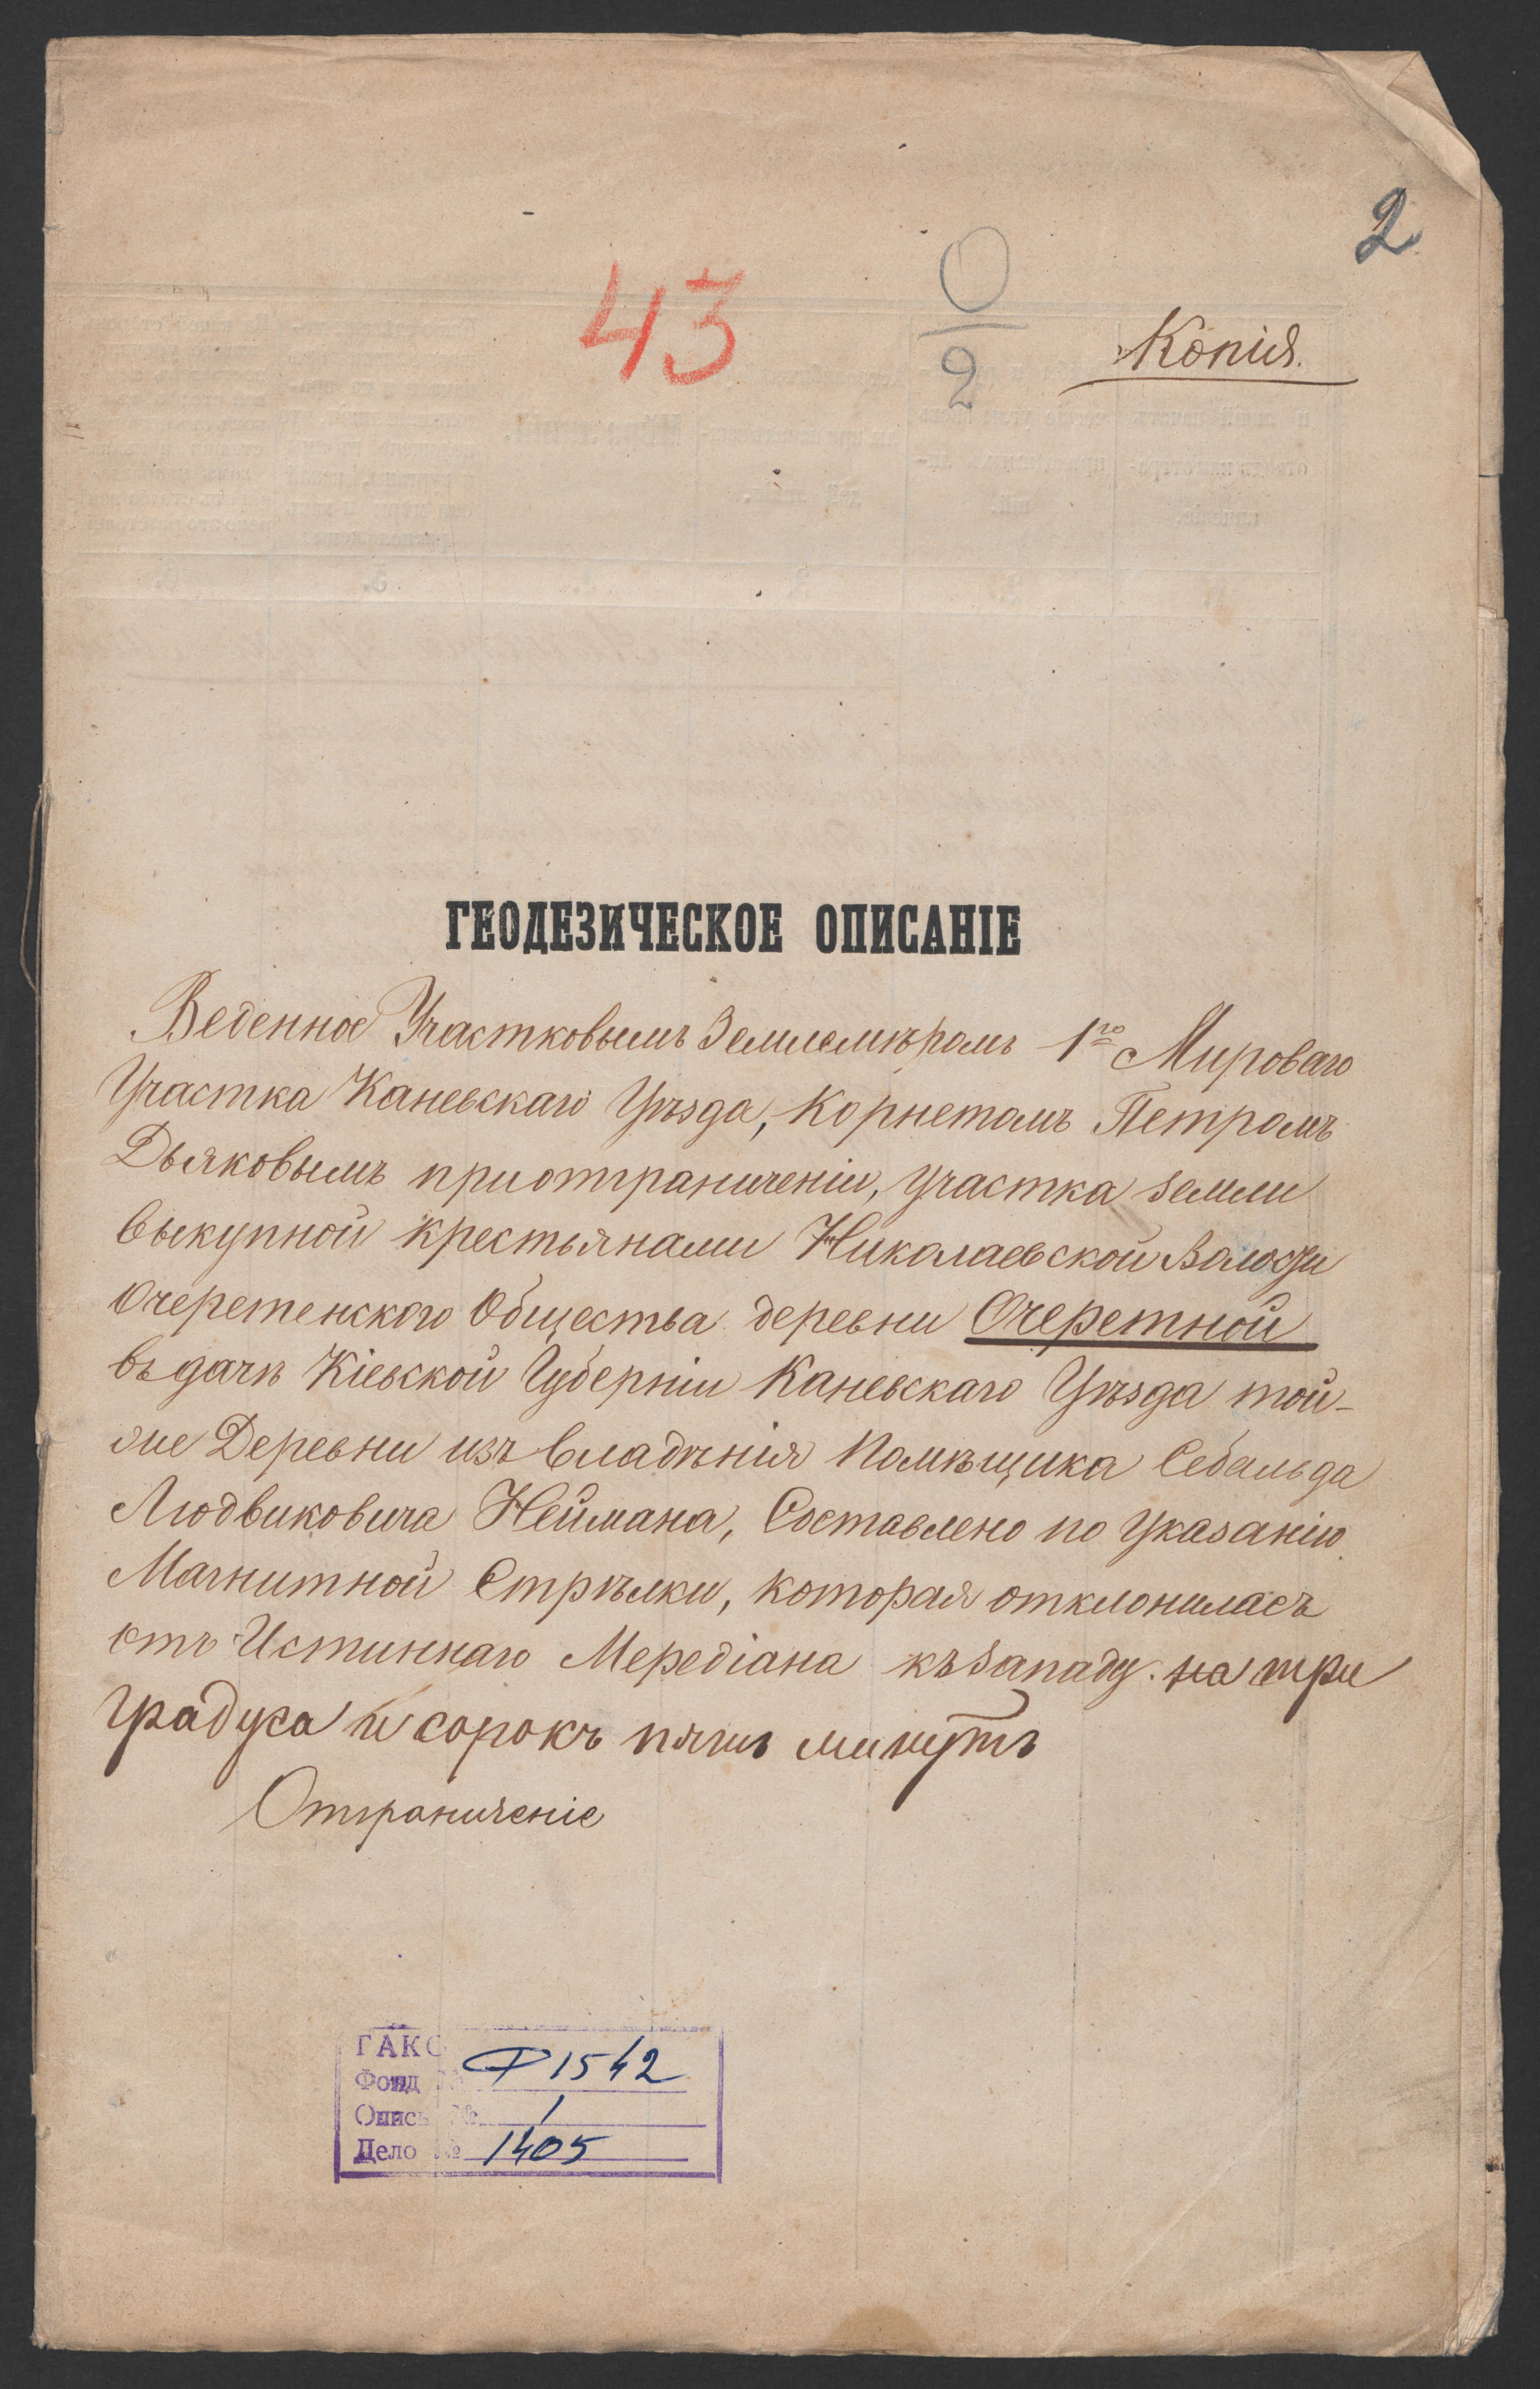 2
43
0
2
Копія.
ГЕОДЕЗИЧЕСКОЕ ОПИСАНІЕ
Веденное Участковымъ Землемѣромъ 1го Мироваго
Участка Каневскаго Уѣзда, Корнетомъ Петромъ
Дьяковымъ приотграниченіи, участка земли
выкупной крестьянами Николаевской Волости
Очеретенского Общества деревни Очеретной
въ дачѣ Кіевской Губерніи Каневскаго Уѣзда той-
же Деревни изъ владѣнія Помѣщика Себальда
Людвиковича Неймана, Составлено по указанію
Магнитной Стрѣлки, которая отклонилась
отъ Истиннаго Мередіана къ западу на три
градуса и сорокъ пять минутъ
Отграниченіе
ГАКО
Фонд № Ф 1542
Опись № 1
Дело № 1405